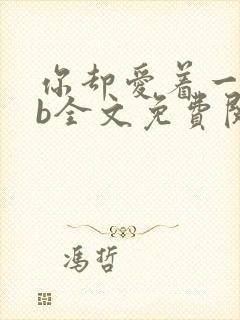 你却爱着一
b全文免費閱
冯哲